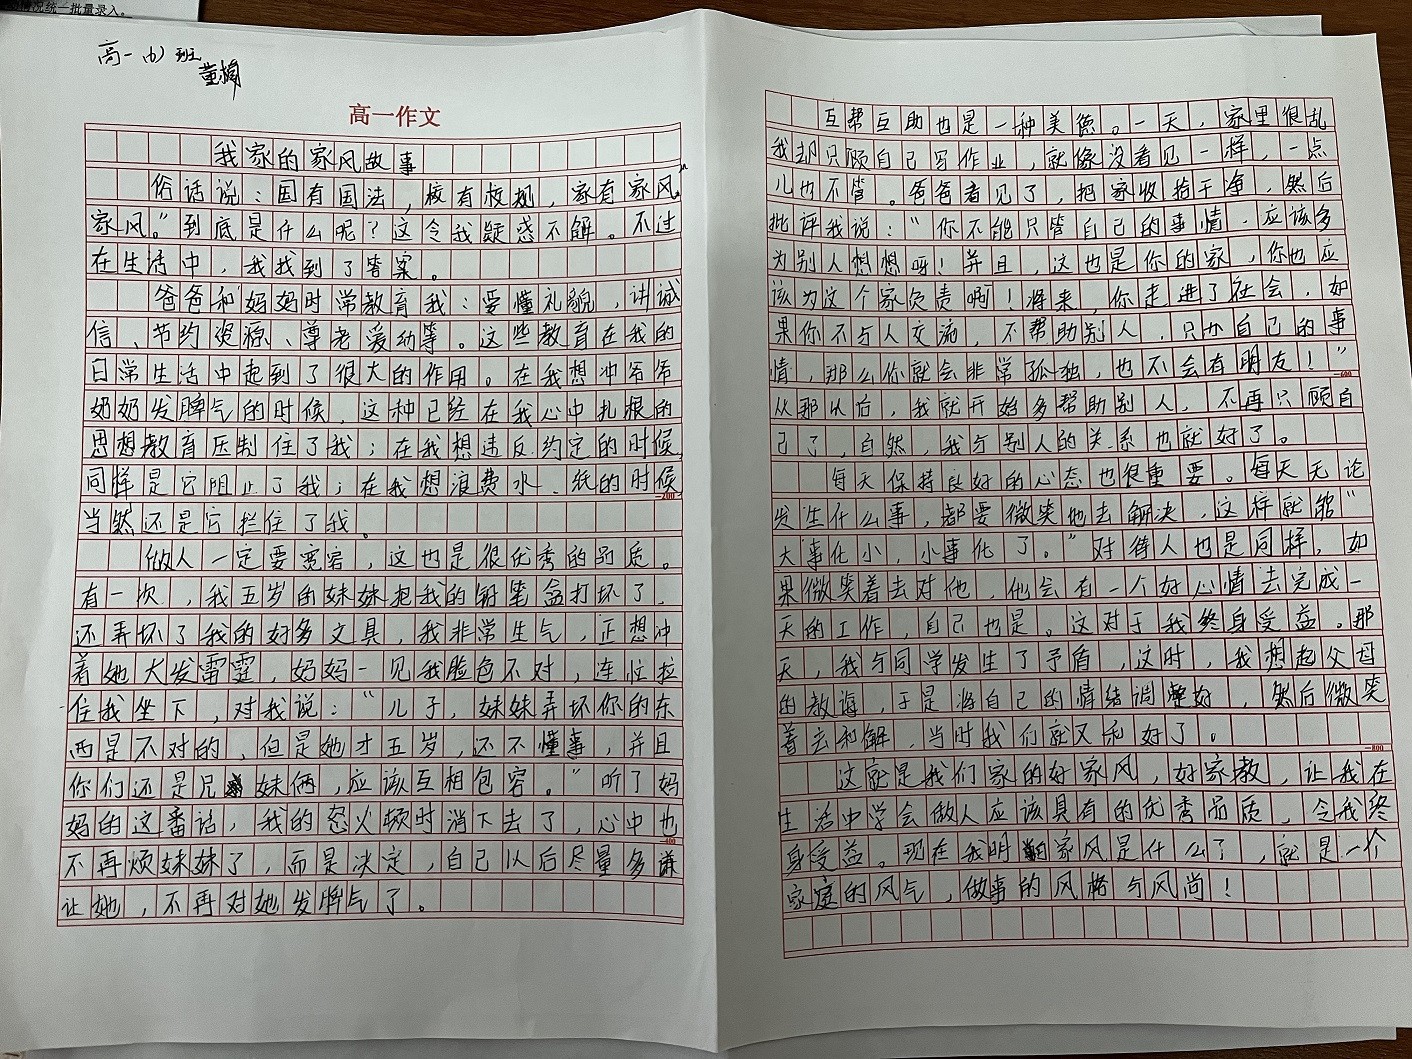 情况统一批量录入。
高一(1)班
董
高一作文
我家的家风故事
俗话说:国有国法,校有校规,家有家风。"
家风。"到底是什么呢?这令我疑惑不解。不过
在生活中,我找到了答案。
爸爸和妈妈时常教育我:要懂礼貌,讲诚
信、节约资源、尊老爱幼等。这些教育在我的
日常生活中起到了很大的作用。在我想冲爷爷
奶奶发脾气的时候,这种已经在我心中扎根的
思想教育压制住了我;在我想违反约定的时候,
同样是它阻止了我;在我想浪费水、纸的时候,
-200
当然还是它拦住了我。
做人一定要宽容,这也是很优秀的品质。
有一次,我五岁的妹妹把我的钢笔盒打坏了,
还弄坏了我的好多文具,我非常生气,正想冲
着她大发雷霆,妈妈一见我脸色不对,连忙拉
住我坐下,对我说:"儿子,妹妹弄坏你的东
西是不对的,但是她才五岁,还不懂事,并且
你们还是兄妹俩,应该互相包容。"听了妈
妈的这番话,我的怒火顿时消下去了,心中也
-400
不再烦妹妹了,而是决定,自己以后尽量多谦
让她,不再对她发脾气了。
互帮互助也是一种美德。一天,家里很乱
我却只顾自己写作业,就像没看见一样,一点
儿也不管。爸爸看见了,把家收拾干净,然后
批评我说:"你不能只管自己的事情,应该多
为别人想想呀!并且,这也是你的家,你也应
该为这个家负责啊!将来,你走进了社会,如
果你不与人交流,不帮助别人,只办自己的事
情,那么你就会非常孤独,也不会有朋友!"
-600
从那以后,我就开始多帮助别人,不再只顾自
己了,自然,我与别人的关系也就好了。
每天保持良好的心态也很重要。每天无论
发生什么事,都要微笑地去解决,这样就能"
大事化小,小事化了。"对待人也是同样,如
果微笑着去对他,他会有一个好心情去完成一
天的工作,自己也是。这对于我终身受益。那
天,我与同学发生了矛盾,这时,我想起父母
的教诲,于是将自己的情结调整好,然后微笑
着去和解,当时我们就又和好了。
-800
这就是我们家的好家风,好家教,让我在
生活中学会做人应该具有的优秀品质,令我终
身受益。现在我明白家风是什么了,就是一个
家庭的风气,做事的风格与风尚!